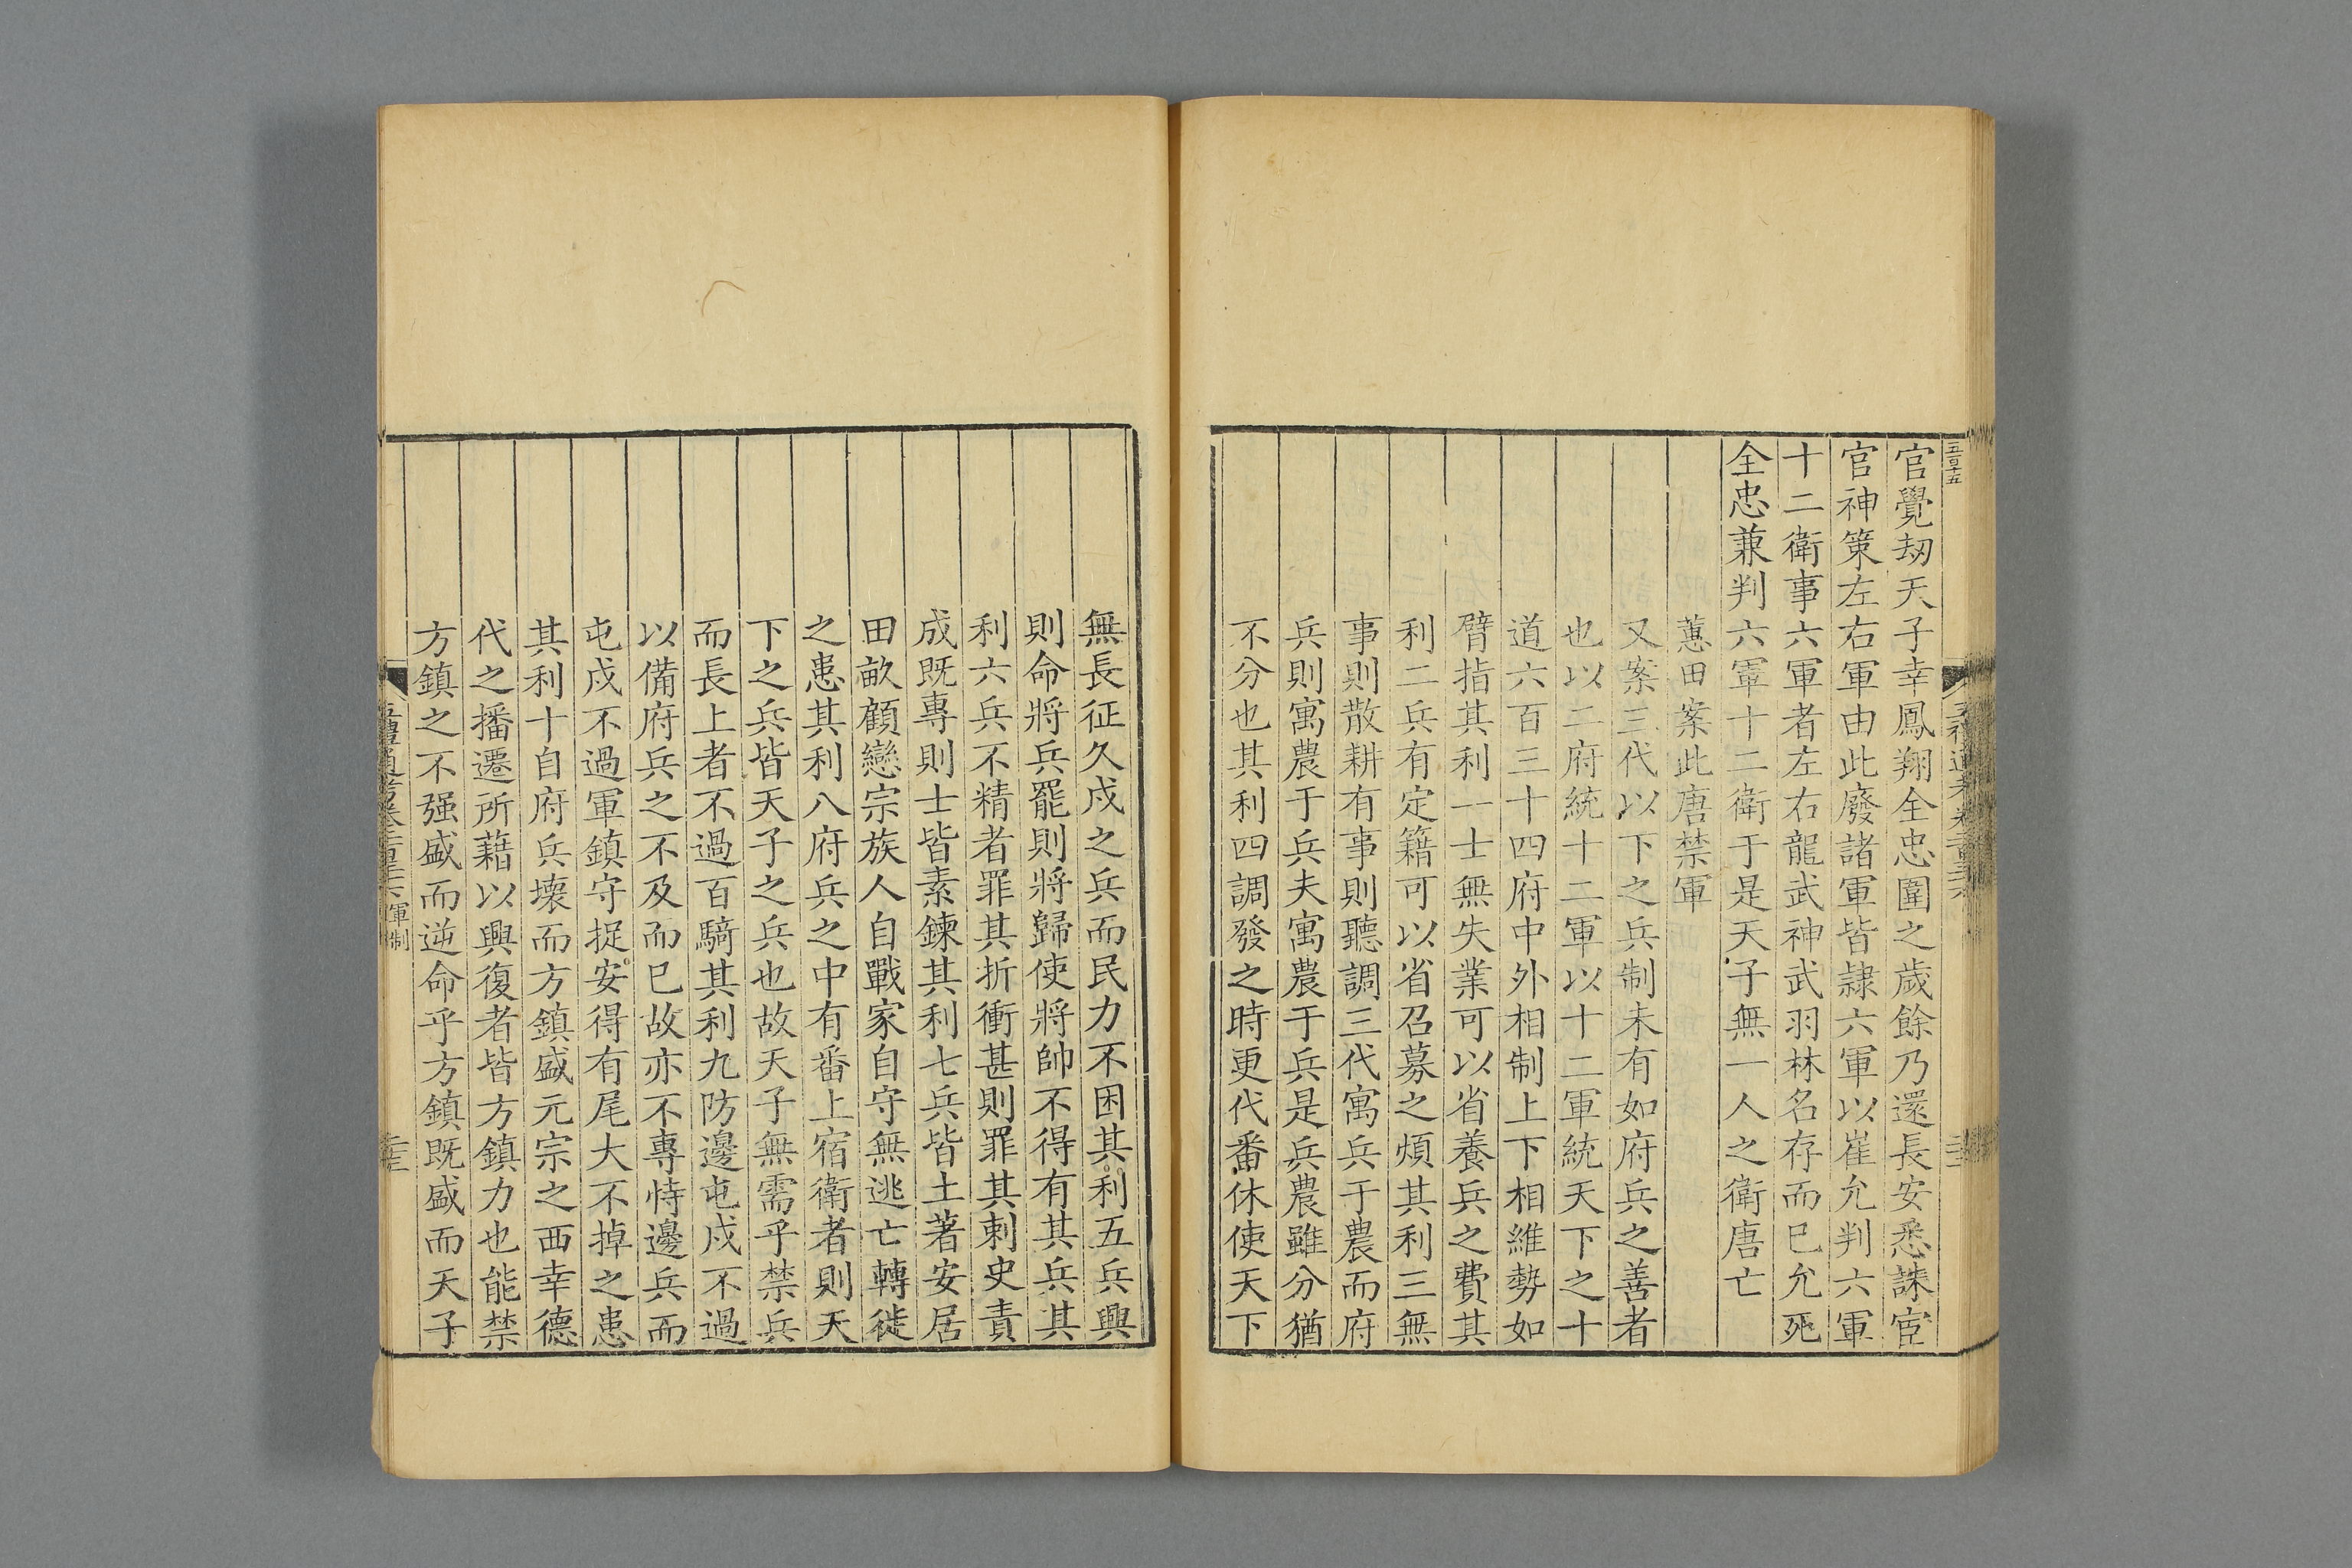 五百十五
官覺刼天子幸鳳翔全忠圍之歲餘乃還長安悉誅宦
官神策左右軍由此廢諸軍皆隷六軍以崔允判六軍
十二衛事六軍者左右龍武神武羽林名存而已允死
全忠兼判六軍十二衛于是天子無一人之衛唐亡
蕙田案此唐禁軍
又案三代以下之兵制未有如府兵之善者
也以二府統十二軍以十二軍統天下之十
道六百三十四府中外相制上下相維勢如
臂指其利一士無失業可以省養兵之費其
利二兵有定籍可以省召募之煩其利三無
事則散耕有事則聽調三代寓兵于農而府
兵則寓農于兵夫寓農于兵是兵農雖分猶
不分也其利四調發之時更代番休使天下
無長征久戍之兵而民力不困其利五兵興
則命將兵罷則將歸使將帥不得有其兵其
利六兵不精者罪其折衝甚則罪其刺史責
成既專則士皆素鍊其利七兵皆土著安居
田畝顧戀宗族人自戰家自守無逃亡轉徙
之患其利八府兵之中有番上宿衛者則天
下之兵皆天子之兵也故天子無需乎禁兵
而長上者不過百騎其利九防邊屯戍不過
以備府兵之不及而已故亦不專恃邊兵而
屯戍不過軍鎮守捉安得有尾大不掉之患
其利十自府兵壞而方鎮盛元宗之西幸德
代之播遷所藉以興復者皆方鎮力也能禁
方鎮之不强盛而逆命乎方鎮既盛而天子
五禮通考卷二百三十六 軍制